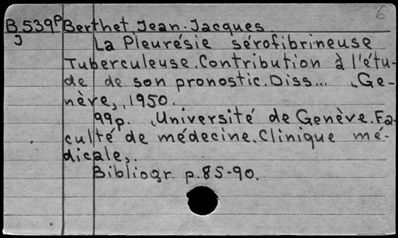 6
B.539P Berthet Jean-Jacques
J La Pleurésie sérofibrineuse
Tuberculeuse.Contribution à l'étu-
de de son pronostic.Diss... ,Ge-
nève,,1950.
99p. ,Université de Genève.Fa-
culté de médecine.Clinique mé-
dicale,.
Bibliogr. p.85-90.